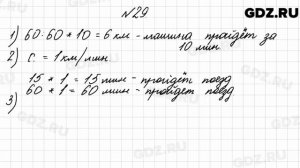 GDZ.RU
№29
1) 60:60*10 = 6 км - машина пройдёт за
10 мин.
2) с. = 1 км/мин.
15 * 1 = 15 мин - пройдёт поезд
3) 60 * 1 = 60 мин - пройдёт поезд